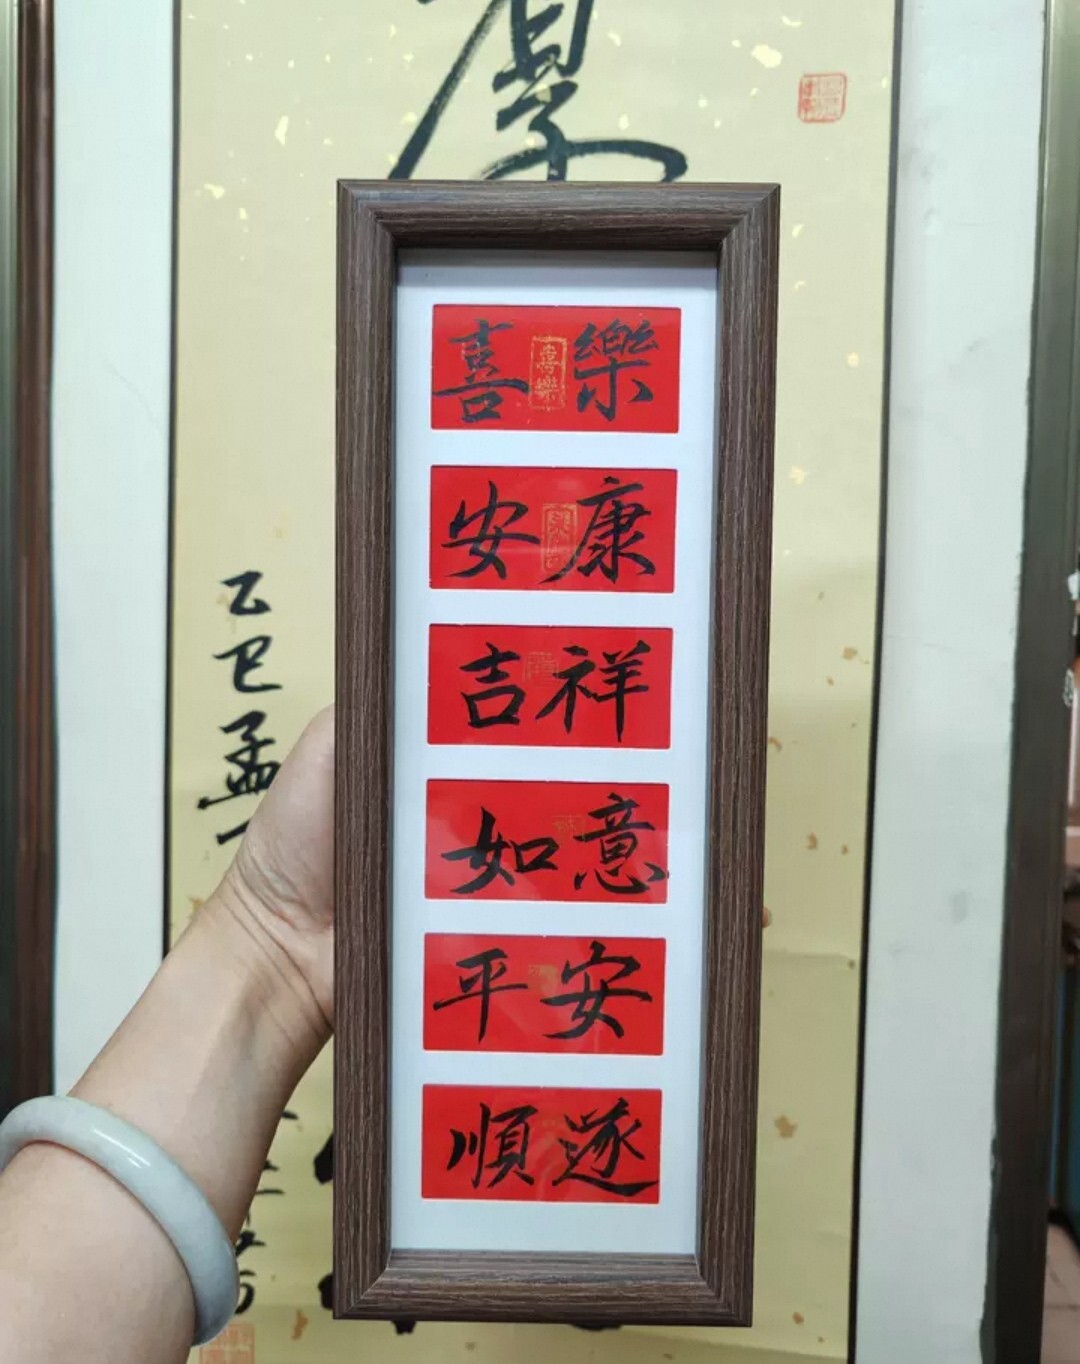 厚
喜樂
喜樂
安康
吉祥
如意
平安
順遂
乙巳孟